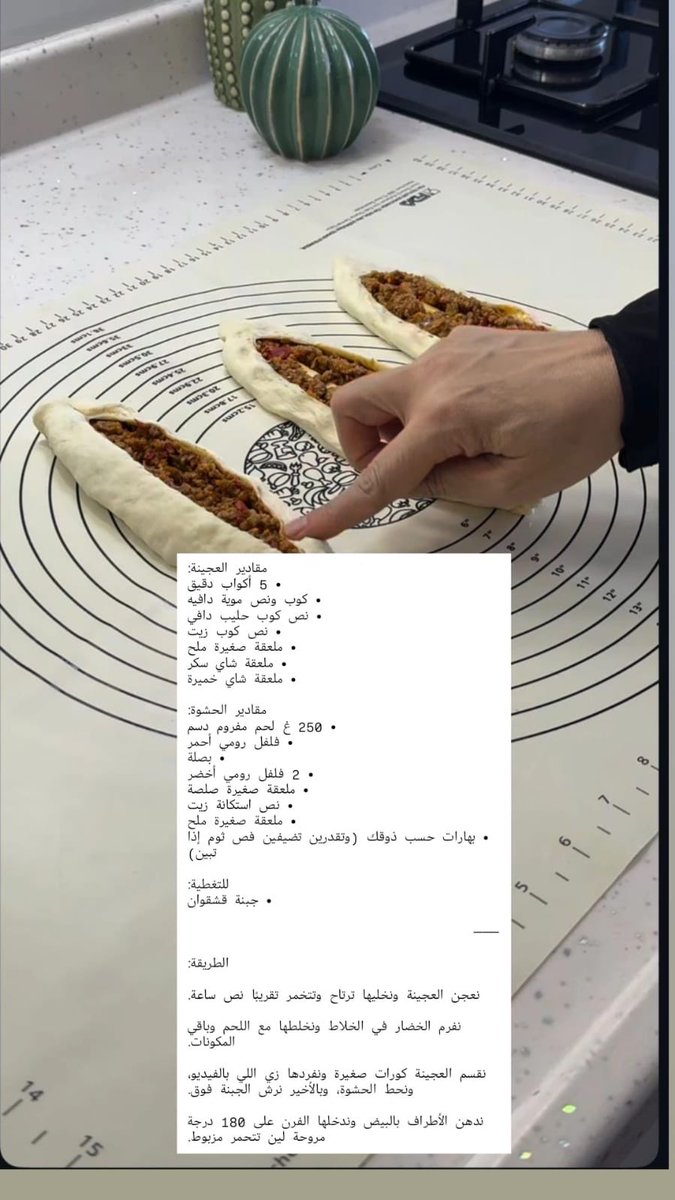 38.1cms
35.6cms
33cms
30.5cms
27.9cms
25.4cms
22.9cms
20.3cms
17.8cms
15.2cms
6"
7"
8"
9"
10"
11"
12"
13"
8
7
6
5
14
15
مقادير العجينة:
• 5 أكواب دقيق
• كوب ونص موية دافيه
• نص كوب حليب دافي
• نص كوب زيت
• ملعقة صغيرة ملح
• ملعقة شاي سكر
• ملعقة شاي خميرة
مقادير الحشوة:
• 250 غ لحم مفروم دسم
• فلفل رومي أحمر
• بصلة
• 2 فلفل رومي أخضر
• ملعقة صغيرة صلصة
• نص استكانة زيت
• ملعقة صغيرة ملح
• بهارات حسب ذوقك (وتقدرين تضيفين فص ثوم إذا
تبين)
للتغطية:
• جبنة قشقوان
⸻
الطريقة:
نعجن العجينة ونخليها ترتاح وتتخمر تقريبًا نص ساعة.
نفرم الخضار في الخلاط ونخلطها مع اللحم وباقي
المكونات.
نقسم العجينة كورات صغيرة ونفردها زي اللي بالفيديو،
ونحط الحشوة، وبالأخير نرش الجبنة فوق.
ندهن الأطراف بالبيض وندخلها الفرن على 180 درجة
مروحة لين تتحمر مزبوط.